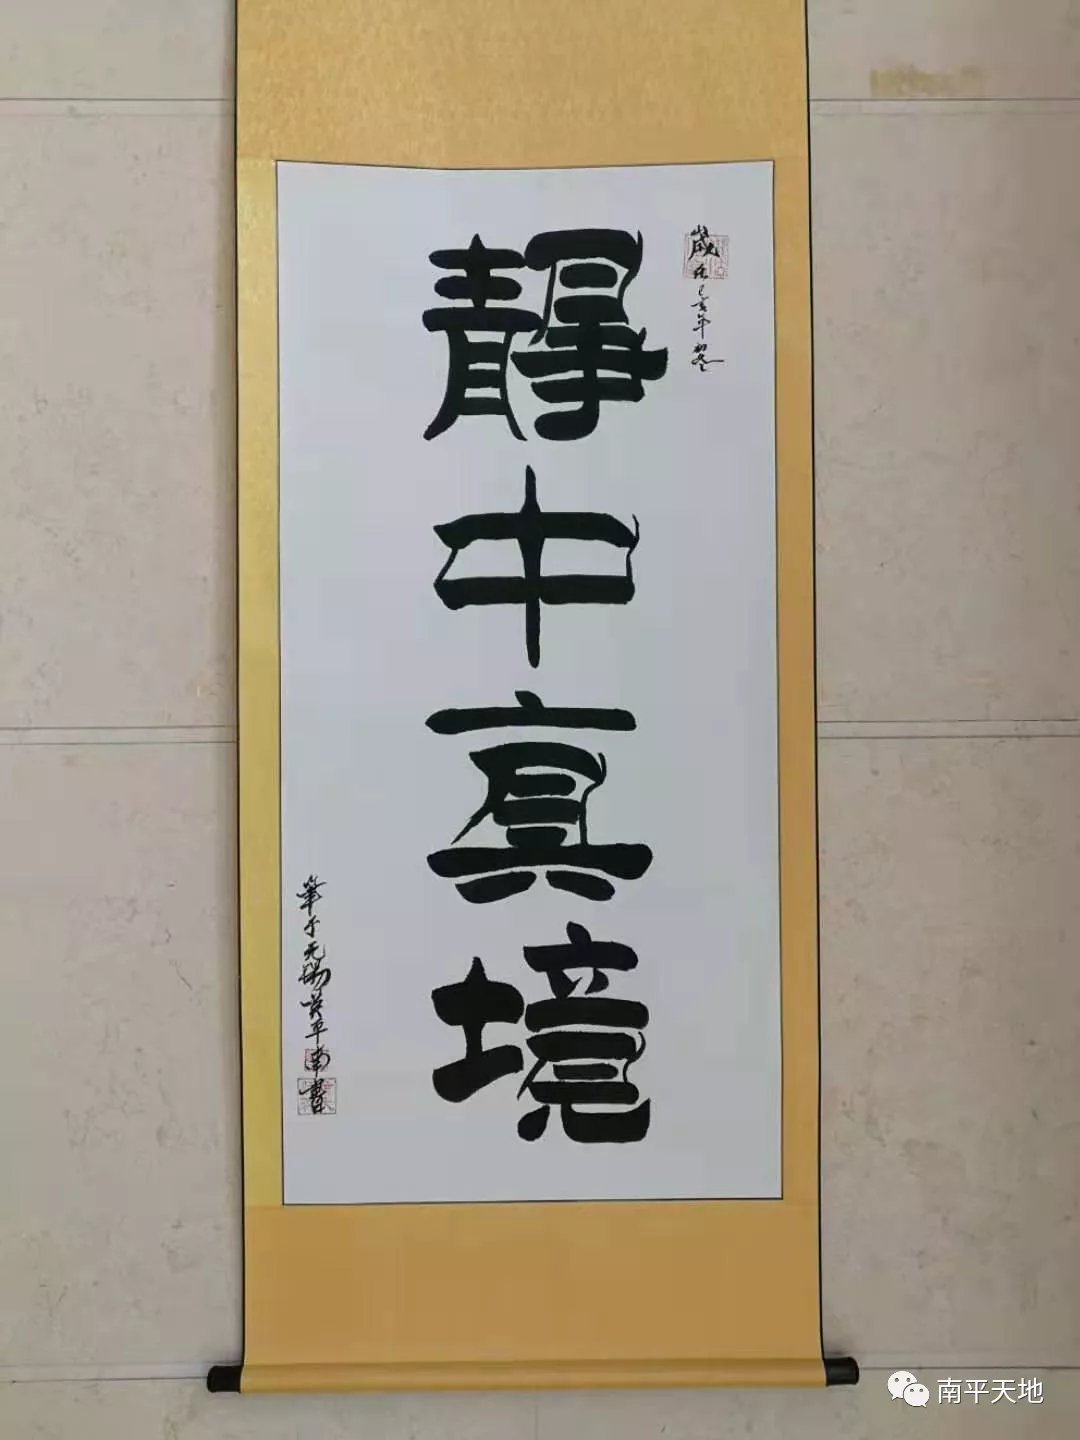 歲在己亥年初冬
靜中真境
筆于无锡
平南書
南平天地